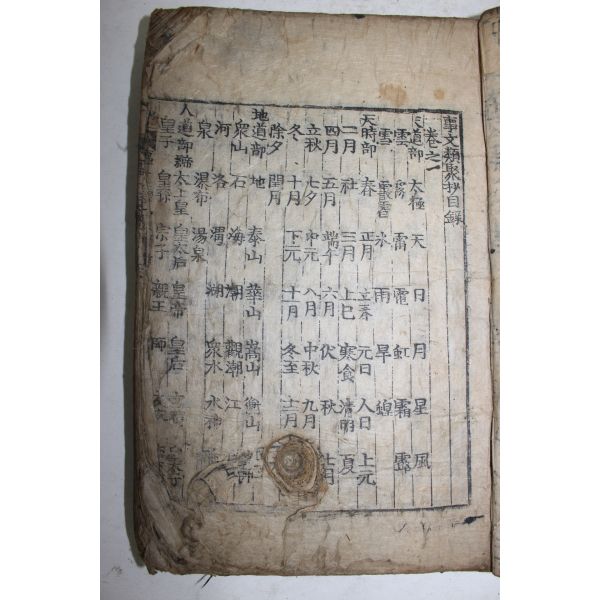 事文類聚抄目錄
卷之一
天道部 太極 天 日 月 星 風
雲 霧 雷 電 虹 霜 露
雪 氷 雨 旱 蝗
天時部 春 正月 立春 元日 人日 上元
二月 社 三月 上巳 寒食 清明 夏
四月 五月 端午 六月 伏 秋 七月
立秋 七夕 中元 八月 中秋 九月
冬 十月 下元 十一月 冬至 十二月
除夕 閏月
地道部 地 泰山 華山 嵩山 衡山
衆山 石 海 潮 觀潮 江
河 洛 湖 衆水 水
泉 瀑布 湯泉
人道部 太上皇 皇太后 皇帝 皇后
皇子 皇孫 宗子 親王